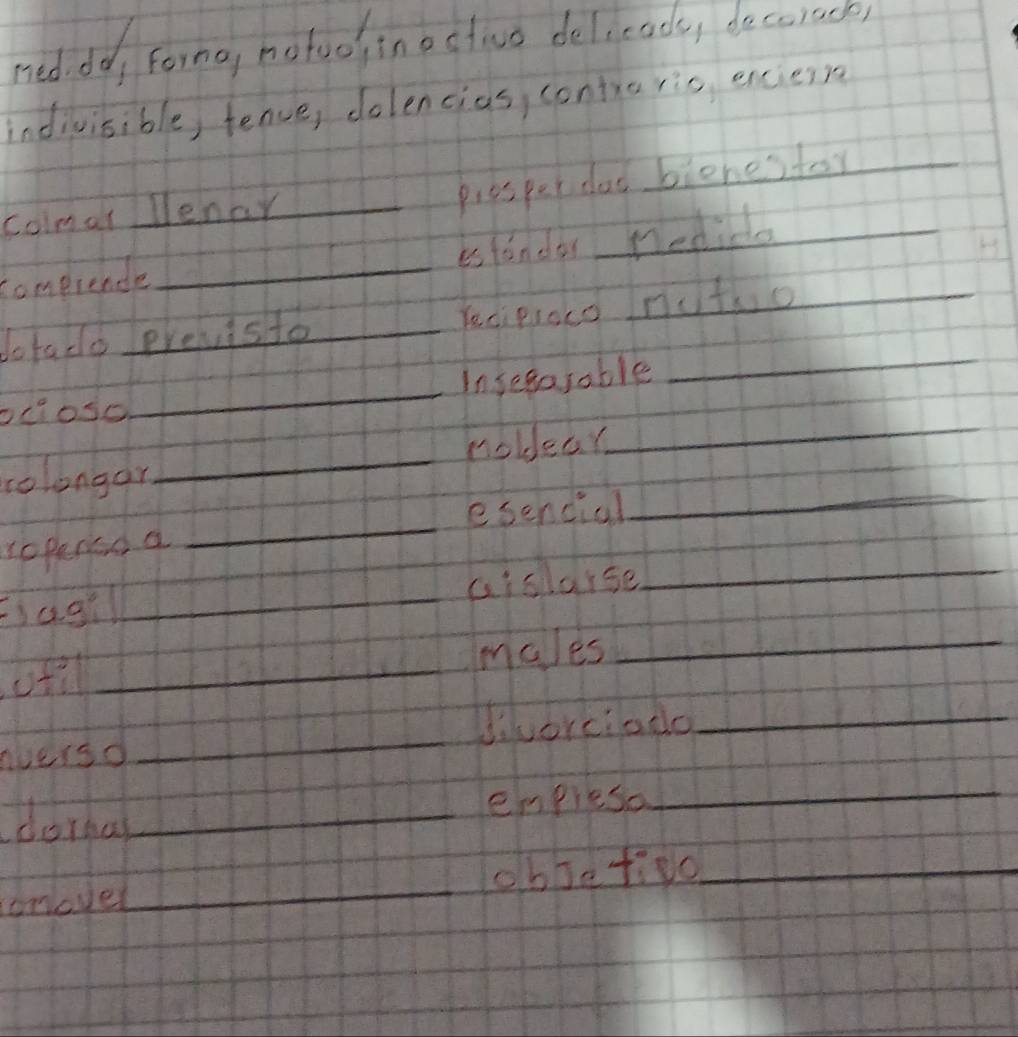 medida, forma, motuo, inactivo delicado, decorado,
indivisible, tenue, dolencias, contrario, encierra
colmar llenar prosperdad bienestar
comprende estándar Medida
dotado previsto reciproco mutuo
ocioso Inseparable
rolongar moldear
ropenso a esencial
Fragil aislarse
util males
nverso divorciado
dornar empresa
romover objetivo